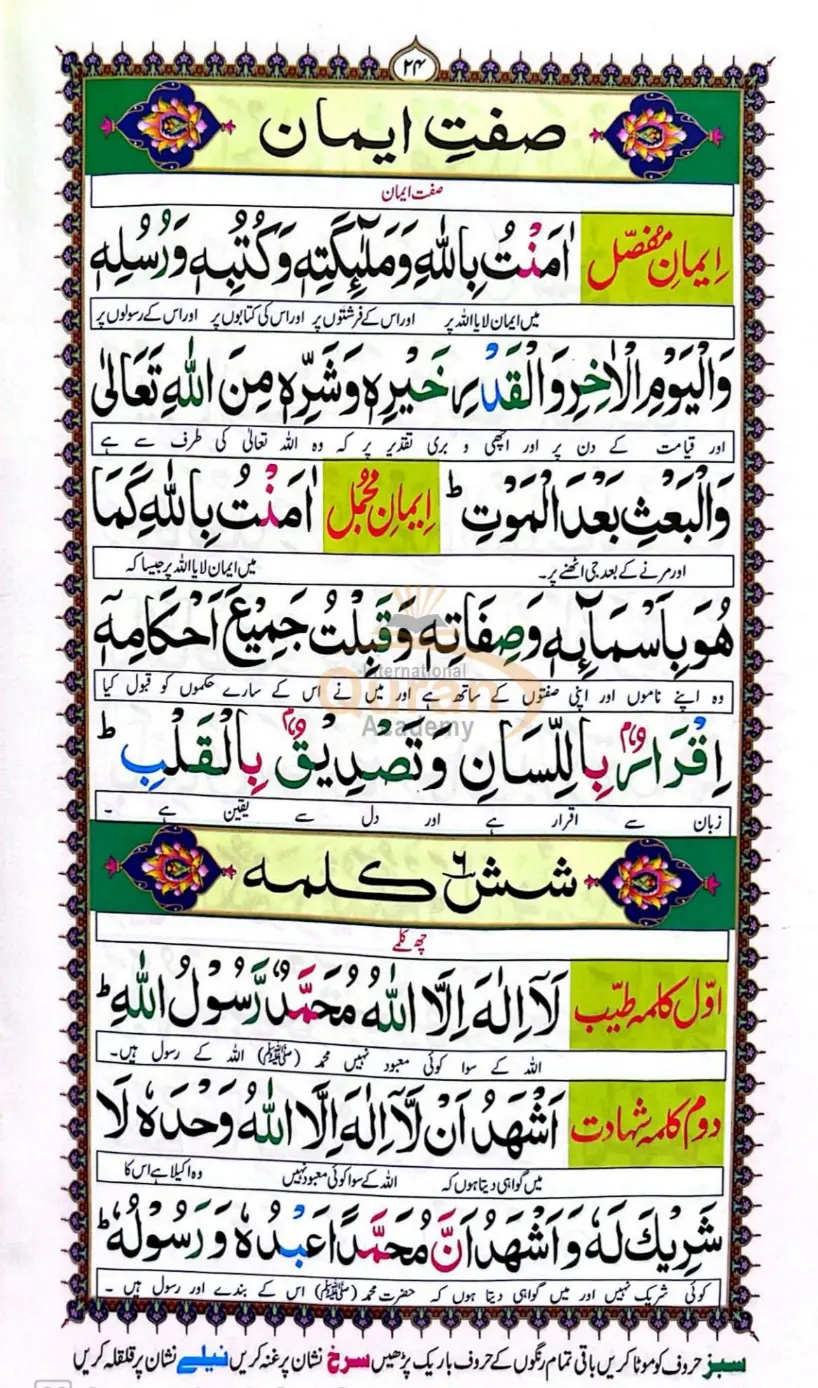 ۲۴
صفتِ ایمان
صفت ایمان
اِیمانِ مُفصّل اٰمَنْتُ بِاللّٰهِ وَمَلٰٓئِكَتِهٖ وَكُتُبِهٖ وَرُسُلِهٖ
میں ایمان لایا اللہ پر اور اس کے فرشتوں پر اور اس کی کتابوں پر اور اس کے رسولوں پر
وَالْيَوْمِ الْاٰخِرِ وَالْقَدْرِ خَيْرِهٖ وَشَرِّهٖ مِنَ اللّٰهِ تَعَالٰى
اور قیامت کے دن پر اور اچھی و بری تقدیر پر کہ وہ اللہ تعالیٰ کی طرف سے ہے
وَالْبَعْثِ بَعْدَ الْمَوْتِ ؕ اِیمانِ مُجمل اٰمَنْتُ بِاللّٰهِ كَمَا
اور مرنے کے بعد جی اٹھنے پر۔ میں ایمان لایا اللہ پر جیسا کہ
هُوَ بِاَسْمَآئِهٖ وَصِفَاتِهٖ وَقَبِلْتُ جَمِيْعَ اَحْكَامِهٖ
وہ اپنے ناموں اور اپنی صفتوں کے ساتھ ہے اور میں نے اس کے سارے حکموں کو قبول کیا
International
Quran
Academy
اِقْرَارٌۢ بِاللِّسَانِ وَتَصْدِيْقٌۢ بِالْقَلْبِ ؕ
زبان سے اقرار ہے اور دل سے یقین ہے ۔
شش ٦ کلمه
چھ کلمے
اوّل کلمہ طیّب لَآ اِلٰهَ اِلَّا اللّٰهُ مُحَمَّدٌ رَّسُوْلُ اللّٰهِ ؕ
اللہ کے سوا کوئی معبود نہیں محمد (ﷺ) اللہ کے رسول ہیں۔
دوم کلمہ شہادت اَشْهَدُ اَنْ لَّآ اِلٰهَ اِلَّا اللّٰهُ وَحْدَهٗ لَا
میں گواہی دیتا ہوں کہ اللہ کے سوا کوئی معبود نہیں وہ اکیلا ہے اس کا
شَرِيْكَ لَهٗ وَاَشْهَدُ اَنَّ مُحَمَّدًا عَبْدُهٗ وَرَسُوْلُهٗ ؕ
کوئی شریک نہیں اور میں گواہی دیتا ہوں کہ حضرت محمد (ﷺ) اس کے بندے اور رسول ہیں ۔
سبز حروف کو موٹا کریں باقی تمام رنگوں کے حروف باریک پڑھیں سرخ نشان پر غنہ کریں نیلے نشان پر قلقلہ کریں